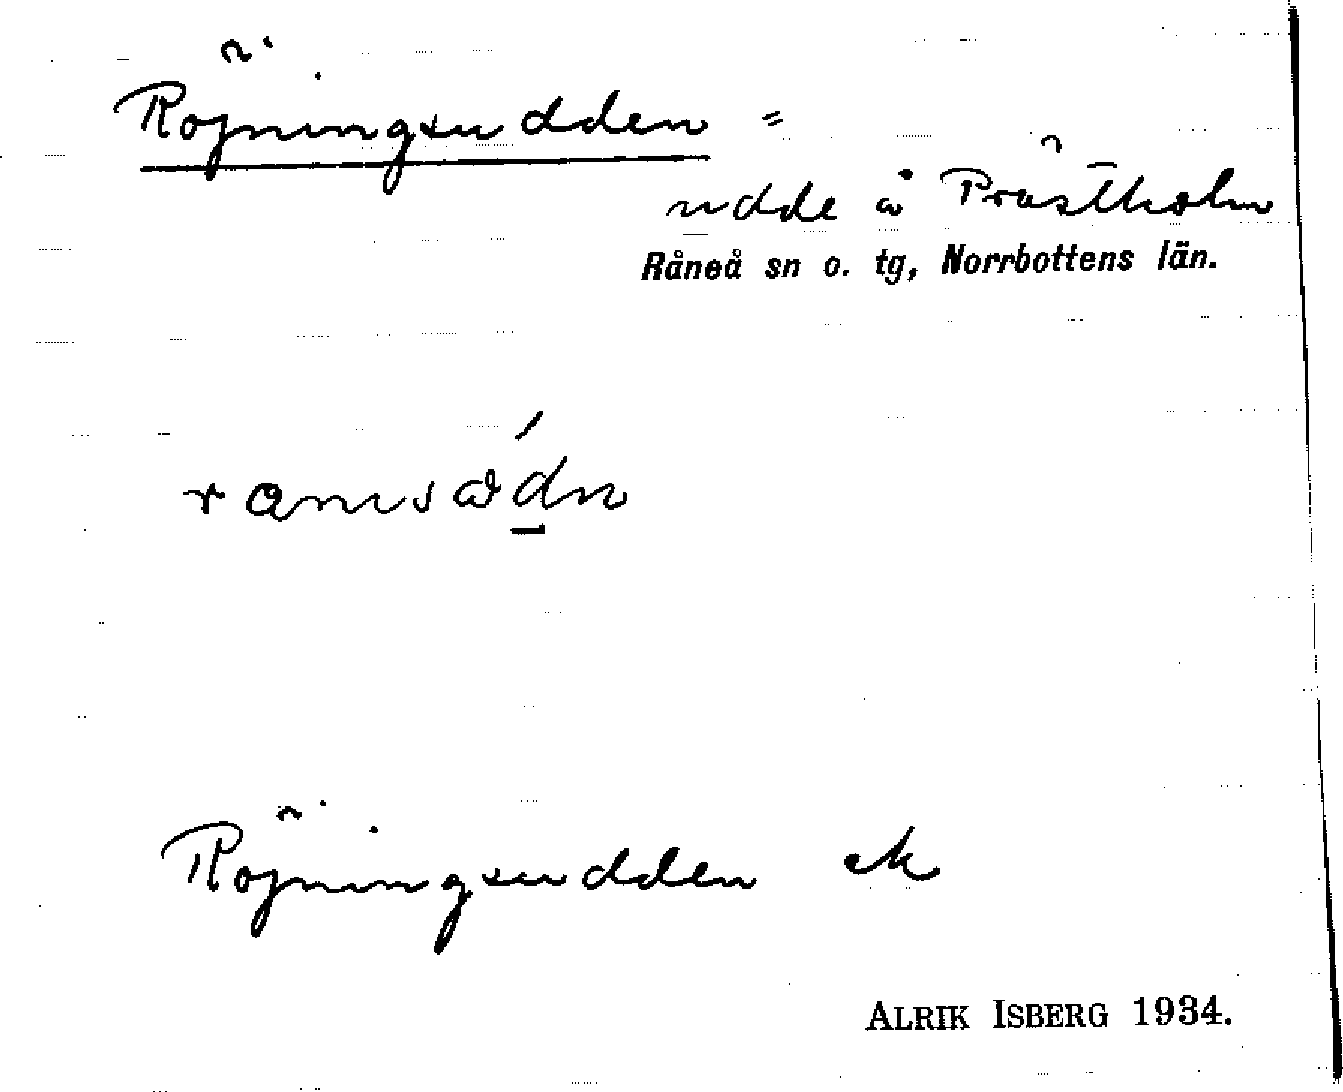 Röjningsudden =
udde å Prästholm
Råneå sn o. tg, Norrbottens län.
Röjningsudden ek
ALRIK ISBERG 1934.